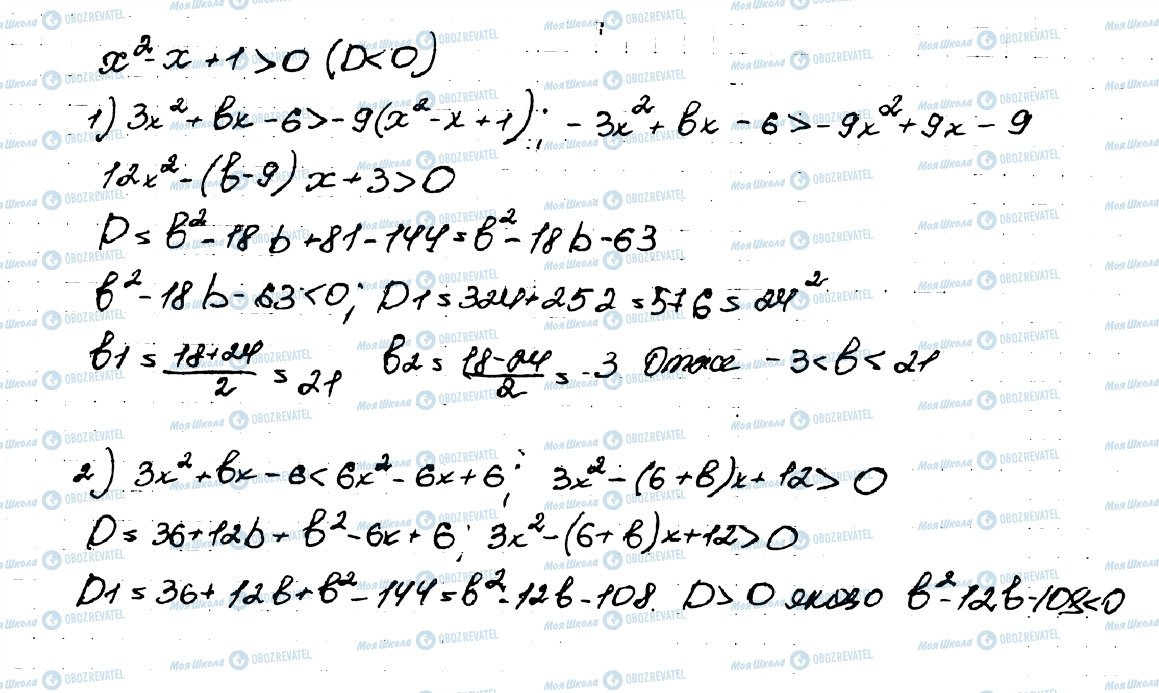 x² - x + 1 > 0 (D < 0)
1) 3x² + bx - 6 > -9(x² - x + 1); - 3x² + bx - 6 > -9x² + 9x - 9
12x² - (b-9)x + 3 > 0
D = b² - 18b + 81 - 144 = b² - 18b - 63
b² - 18b - 63 < 0; D1 = 324 + 252 = 576 = 24²
b1 = (18+24)/2 = 21 b2 = (18-24)/2 = -3 Отже -3 < b < 21
2) 3x² + bx - 6 < 6x² - 6x + 6; 3x² - (6+b)x + 12 > 0
D = 36 + 12b + b² - 6x + 6; 3x² - (6+b)x + 12 > 0
D1 = 36 + 12b + b² - 144 = b² - 12b - 108 D > 0 якщо b² - 12b - 108 < 0
Моя Школа OBOZREVATEL